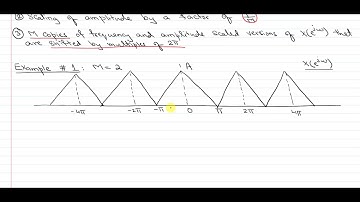 ② Scaling of amplitude by a factor of 1/M
③ M copies of frequency and amplitude scaled versions of X(e^jω) that
are shifted by multiples of 2π
Example # 1: M=2 A X(e^jω)
-4π -2π -π 0 π 2π 4π